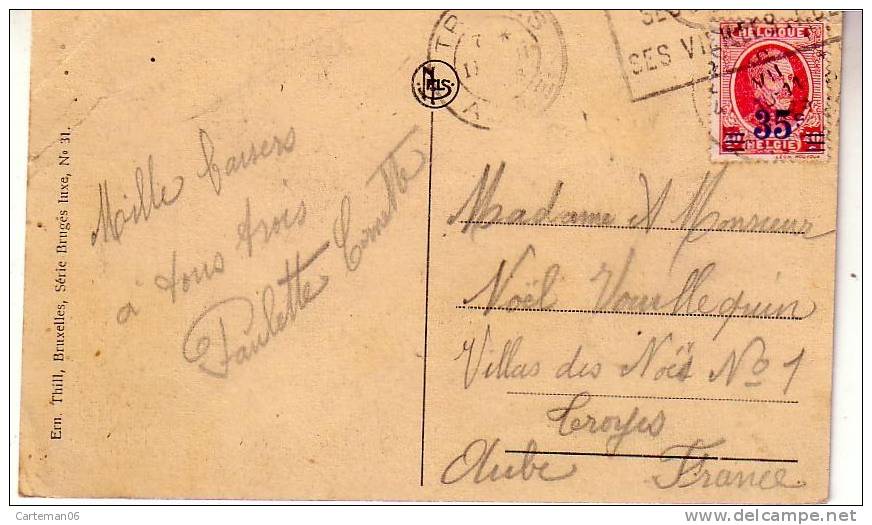 SES VIEILLES
BELGIQUE
35c
BELGIE
NELS
Ern. Thill, Bruxelles, Série Bruges luxe, No 31.
Mille baisers
à tous trois
Paulette Cornette
Madame & Monsieur
Noël Vourllequin
Villas des Noës No 1
Troyes
Aube France
Carteman06
www.delcampe.net